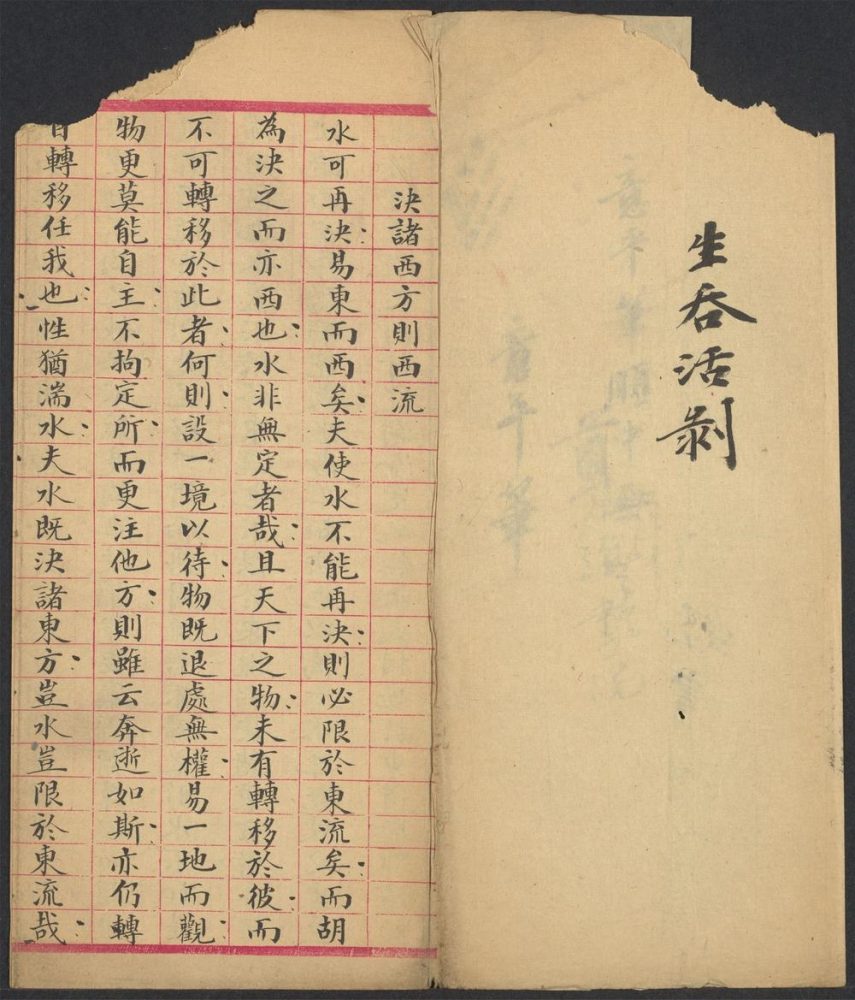 生吞活剝
決諸西方則西流
水可再決易東而西矣夫使水不能再決則必限於東流矣而胡
為決之而亦西也水非無定者哉且天下之物未有轉移於彼而
不可轉移於此者何則設一境以待物既退處無權易一地而觀
物更莫能自主不拘定所而更注他方則雖云奔逝如斯亦仍轉
轉移任我也性猶湍水夫水既決諸東方豈水豈限於東流哉